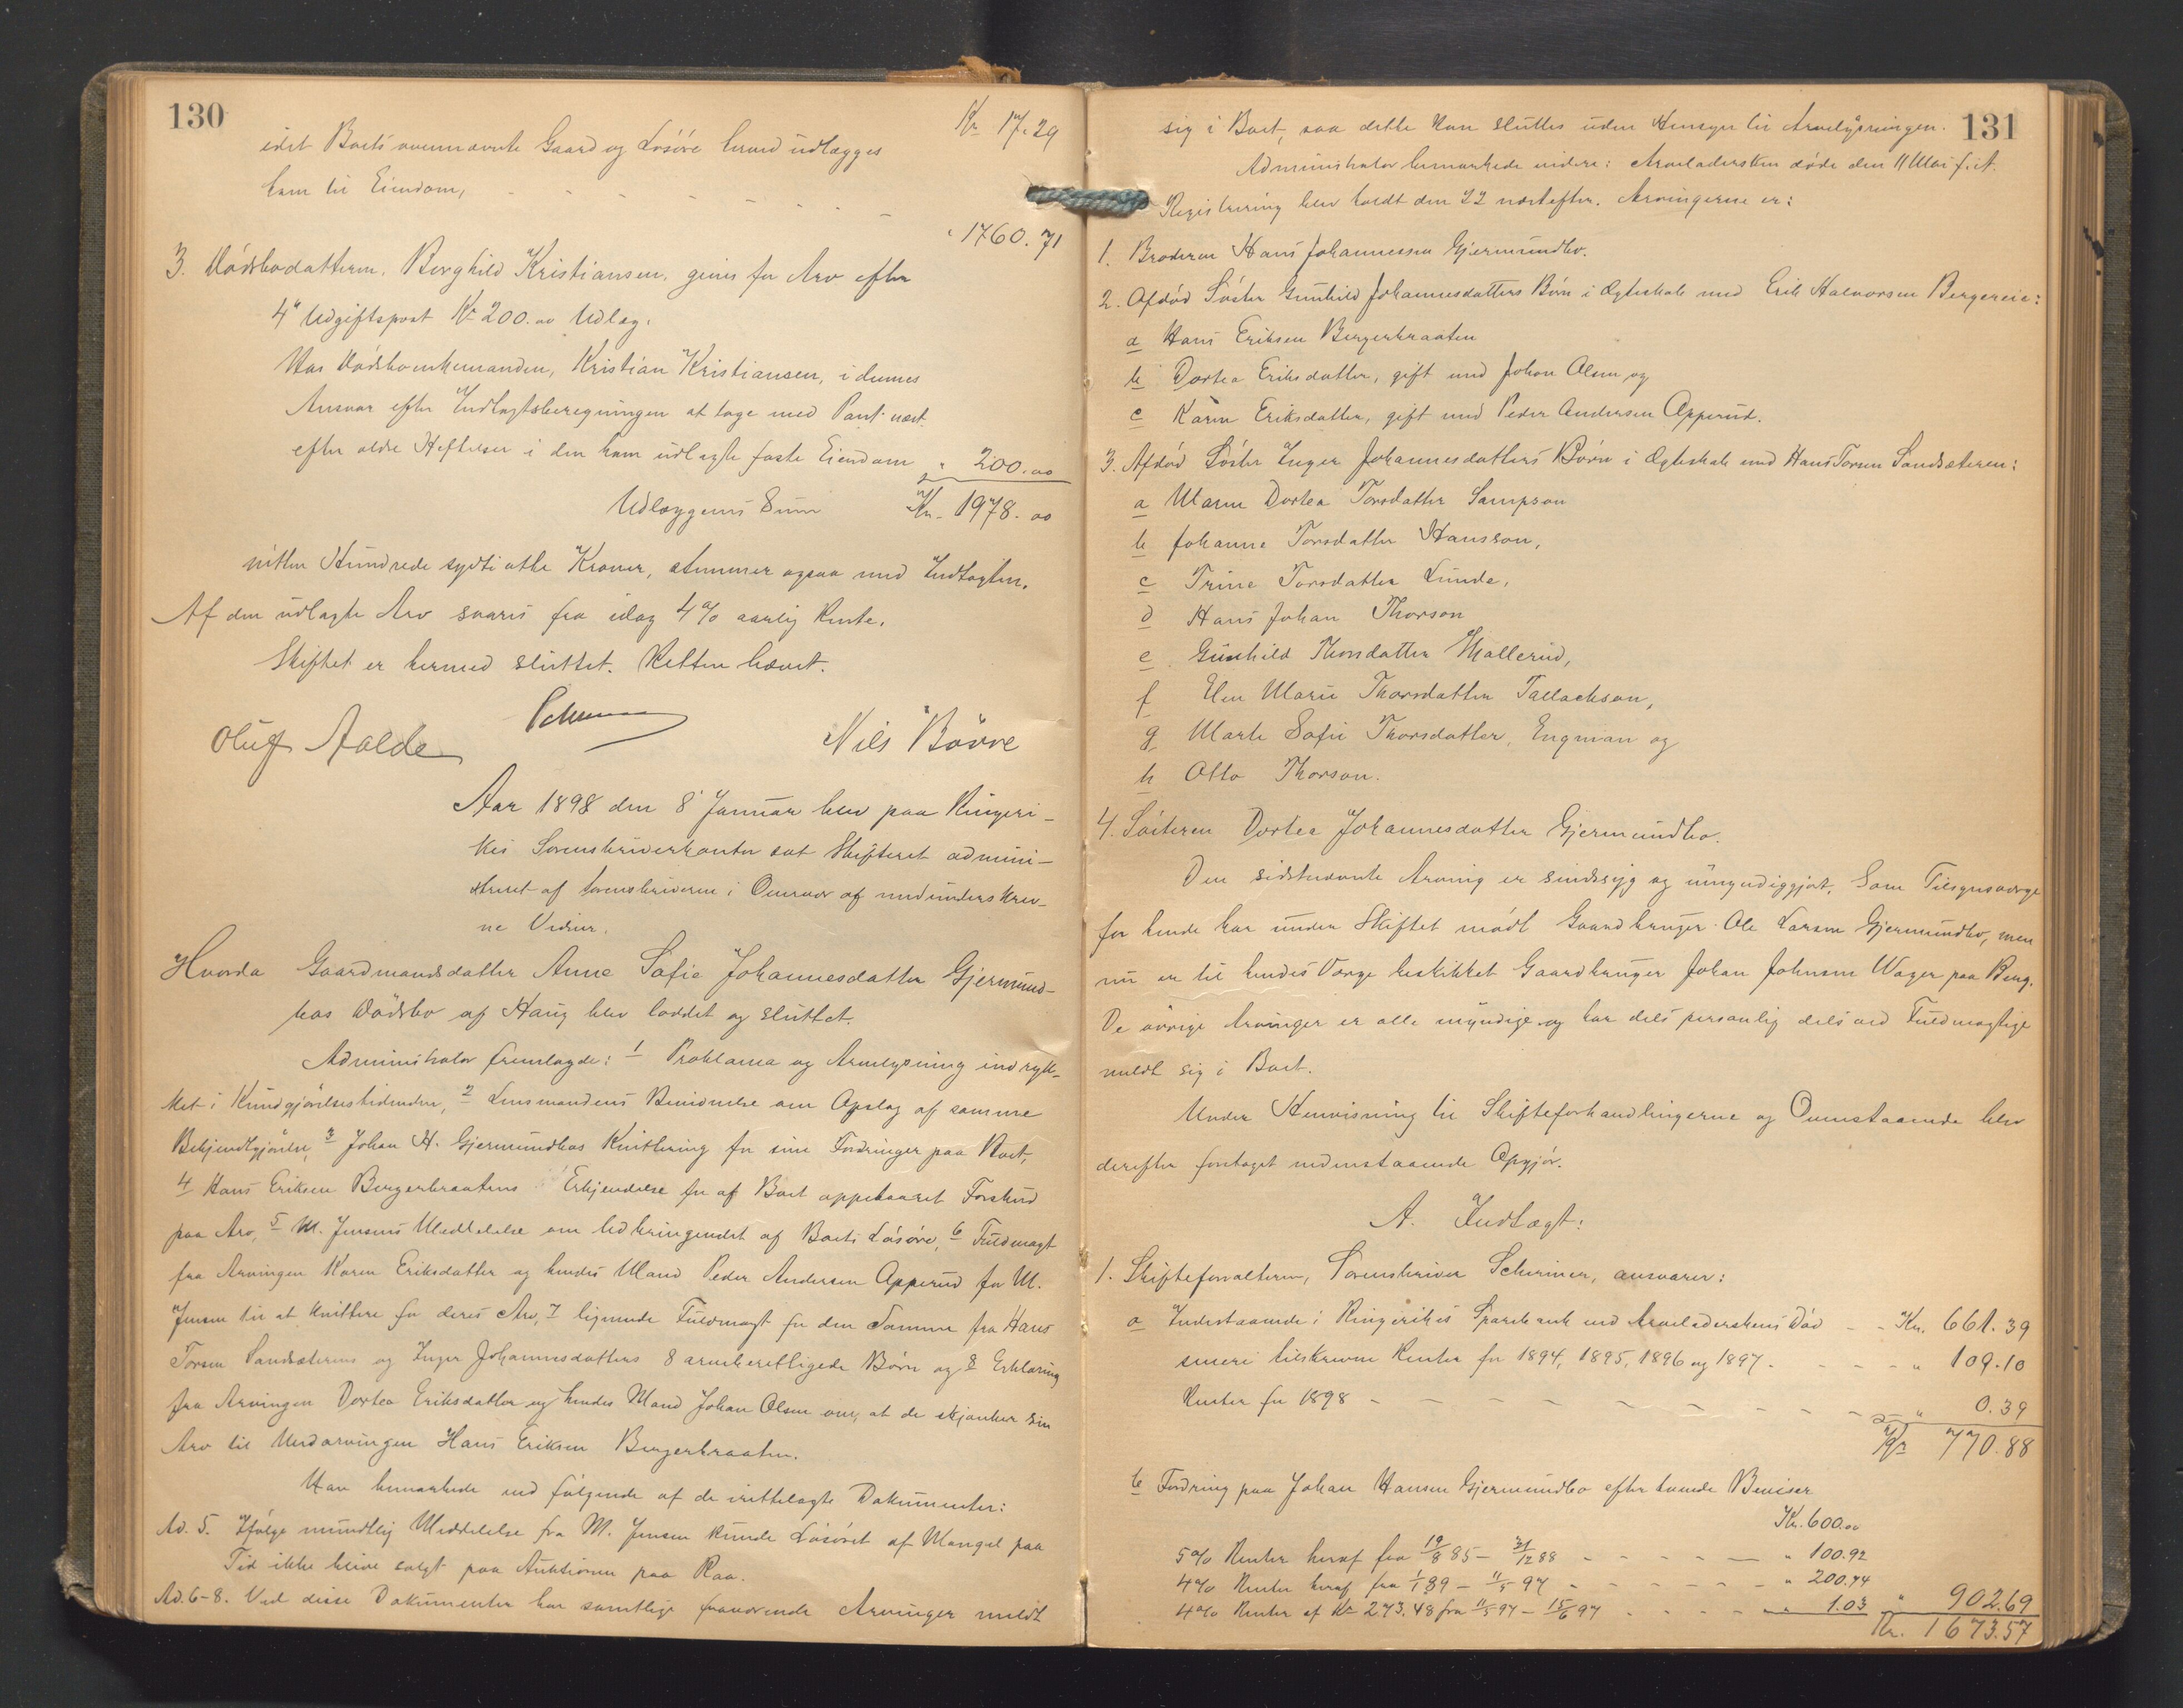 130
Kr 17.29
idet Boets ovennævnte Gaard og Løsøre herved udlægges
ham til Eiendom, - - - - - - -
" 1760.71
3. Dødsbodatteren, Borghild Kristiansen, gives for Arv efter
4' Udgiftspost Kr 200.00 Udlæg:
Hos Dødsboenkemanden, Kristian Kristiansen, i dennes
Ansvar efter Indtægtsberegningen at tage med Pant næst
efter ældre Heftelser i den ham udlagte faste Eiendom " 200.00
Udlæggenes Sum Kr. 1978.00
nitten Hundrede sytti otte Kroner, stemmer ogsaa med Indtægten.
Af den udlagte Arv svares fra idag 4% aarlig Rente.
Skiftet er hermed sluttet. Retten hævet.
Oluf Aalde
Nils Børre
Aar 1898 den 8' Januar blev paa Ringeri-
kes Sorenskriverkontor sat Skifteret admini-
streret af Sorenskriveren i Overvær af nedunderskrev-
ne Vidner.
Hvorda Gaardmandsdatter Anne Sofie Johannesdatter Gjermund-
bos Dødsbo af Haug blev loddet og sluttet.
Administrator fremlagde: 1 Proklama og Arvelysning indryk-
ket i Kundgjørelsestidenden, 2 Lensmandens Bevidnelse om Opslag af samme
Bekjendtgjørelse, 3 Johan H. Gjermundbos Kvittering for sine Fordringer paa Boet,
4 Hans Eriksen Bergerbraatens Erkjendelse for af Boet oppebaaret Forskud
paa Arv, 5 M. Jensens Meddelelse om Udbringendet af Boets Løsøre, 6 Fuldmagt
fra Arvingen Karen Eriksdatter og hendes Mand Peder Andersen Opperud for M.
Jensen til at kvittere for deres Arv, 7 lignende Fuldmagt for den Samme fra Hans
Torsen Sandsæterens og Inger Johannesdatters 8 arveberettigede Børn og 8 Erklæring
fra Arvingen Dortea Eriksdatter og hendes Mand Johan Olsen om, at de skjænker sin
Arv til Medarvingen Hans Eriksen Bergerbraaten.
Han bemærkede ved følgende af de irettelagte Dokumenter:
Ad. 5. Ifølge mundtlig Meddelelse fra M. Jensen kunde Løsøret af Mangel paa
Tid ikke blive solgt paa Auktionen paa Raa.
Ad. 6-8. Ved disse Dokumenter har samtlige fraværende Arvinger meldt
131
sig i Boet, saa dette kan sluttes uden Hensyn til Arvelysningen.
Administrator bemærkede videre: Arveladersken døde den 11 Mai f. A.
Registrering blev holdt den 22 næstefter. Arvingerne er:
1. Broderen Hans Johannessen Gjermundbo.
2. Afdød Søster Gunhild Johannesdatters Børn i Ægteskab med Erik Halvorsen Bergereie:
a Hans Eriksen Bergerbraaten
b Dortea Eriksdatter, gift med Johan Olsen og
c Karen Eriksdatter, gift med Peder Andersen Opperud.
3. Afdød Søster Inger Johannesdatters Børn i Ægteskab med Hans Torsen Sandsæteren:
a Maren Dortea Torsdatter Sampson
b Johanne Torsdatter Hansson,
c Trine Torsdatter Lunde,
d Hans Johan Thorson
e Gunhild Thorsdatter Møllerud,
f Elen Marie Thorsdatter Tallackson,
g Marte Sofie Thorsdatter Engman og
h Otto Thorson.
4. Søsteren Dortea Johannesdatter Gjermundbo.
Den sidstnævnte Arving er sindssyg og umyndiggjort. Som Tilsynsværge
for hende har under Skiftet mødt Gaardbruger Ole Larsen Gjermundbo, men
nu er til hendes Værge beskikket Gaardbruger Johan Johnsen Wager paa Berg.
De øvrige Arvinger er alle myndige og har dels personlig dels ved Fuldmægtige
meldt sig i Boet.
Under Henvisning til Skifteforhandlingerne og Ovenstaaende blev
derefter foretaget nedenstaaende Opgjør.
A. Indtægt:
1. Skifteforvalteren, Sorenskriver Schrimer, ansvarer:
a Indestaaende i Ringerikes Sparebank ved Arveladerskens Død - - Kr. 661.39
senere tilskrevne Renter for 1894, 1895, 1896 og 1897 - - - - - " 109.10
Renter for 1898 - - - - - - - - - - " 0.39
Kr 770.88
b Fordring paa Johan Hansen Gjermundbo efter tvende Beviser
Kr. 600.00
5% Renter heraf fra 19/8 85 - 31/12 88 - - - - - " 100.92
4% Renter heraf fra 1/1 89 - 11/5 97 - - - - - " 200.74
4% Renter af Kr 273.48 fra 11/5 97 - 15/6 97 - - - - " 1.03 " 902.69
Kr. 1673.57